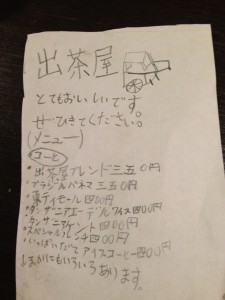 出茶屋
とてもおいしいです。
ぜひきてください。
(メニュー)
コーヒー
・出茶屋ブレンド三五0円
・ブラジルパネマ三五0円
・東ティモール四00円
・タンザニアエーデルアイス四00円
タンザニアケント四00円
・スペシャルフレンチ四00円
・いっぱいだて アイスコーヒー四00円
ほかにもいろいろあります。